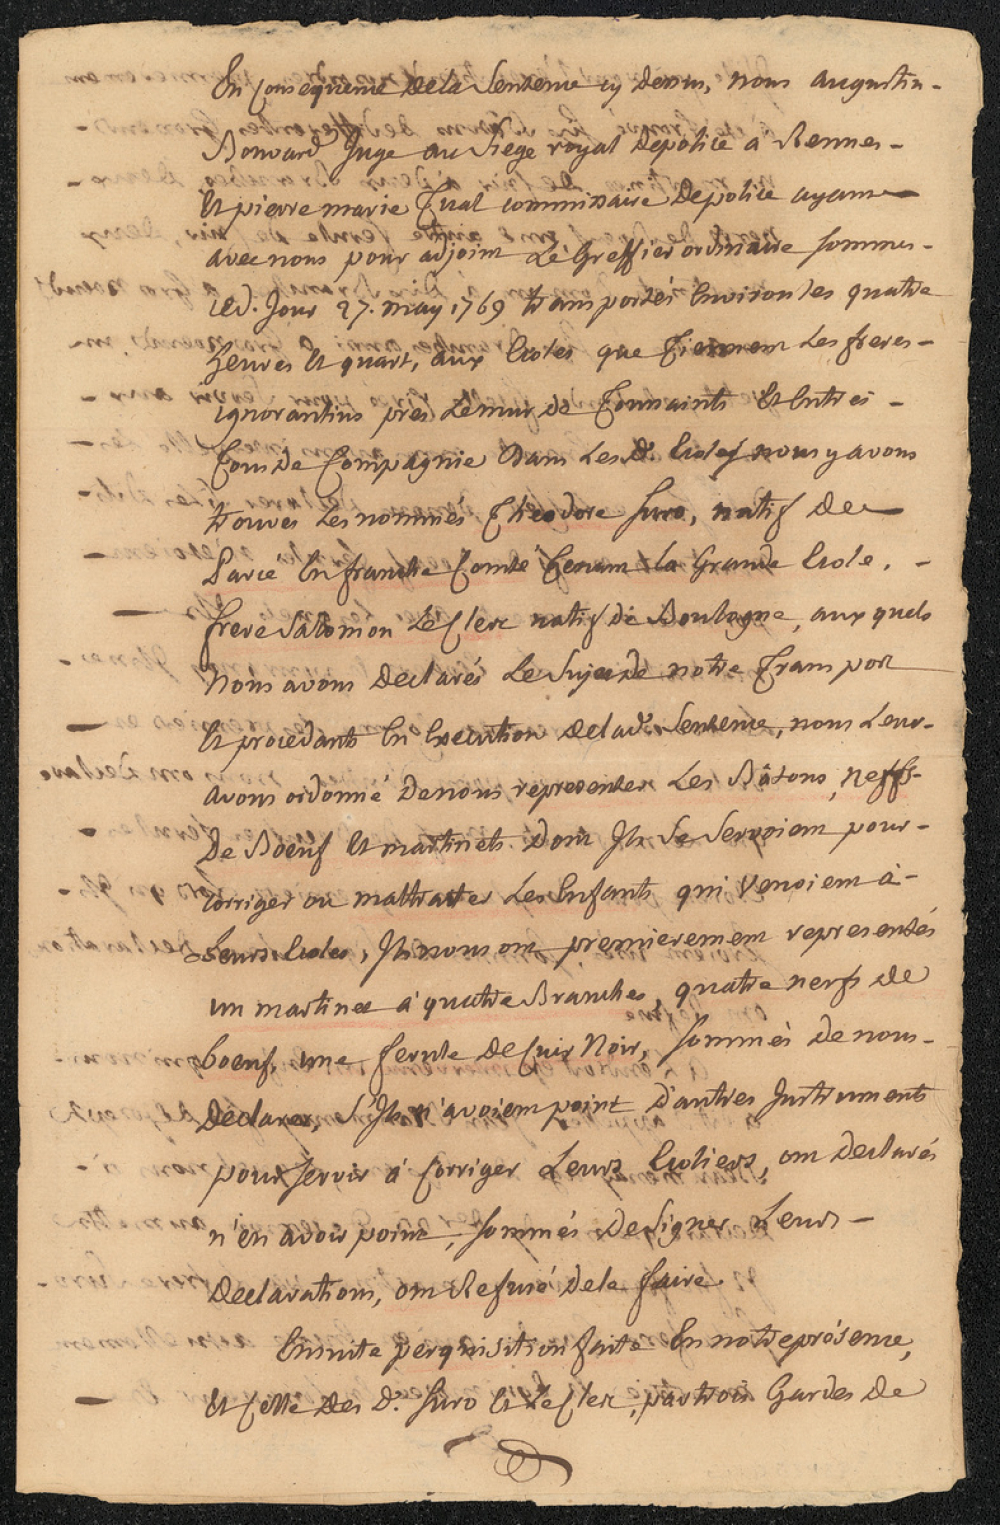 En Consequence dela Sentence cy dessus, nous augustin -
Bonvard Juge au Siege royal depolice a Rennes -
Et pierre marie Tual commissaire depolice ayant
avec nous pour adjoint Le Greffier ordinaire sommes -
led. Jour 27. may 1769 transportés Environ les quatre
heures Et quart, aux Ecoles que Tiennent Les freres -
ignorantins pres Lemur de Toussaints Et Entrés -
Tous de Compagnie Dans Les d. Ecoles nous y avons
trouvés Les nommés Theodore Juro, natif de
Parcé En franche Comté Tenant La Grande Ecole. -
frere Salomon LeClerc natif de Boulogne, aux quels
Nous avons Declarés Le Sujet de notre Transport
Et procedants En Execution delad. Sentence, nous Leur -
avons ordonné denous representer Les Bâtons, neffs -
De Boeuf Et martinets dont Ils Se Servoient pour -
Corriger ou maltraiter Les Enfants qui Venoient a -
Leurs Ecoles, Ils nous ont premierement representés
un martinet a quatre Branches, quatre nerfs de
boeuf, une ferule de Cuir Noir, Sommés de nous -
Declarer, S'Ils n'avoient point d'autres Instruments
pour servir a Corriger Leurs Ecoliers, ont declarés
n'en avoir point, Sommés de Signer Leurs -
Declarations, ont Refusé dele faire.
Ensuite perquisition faite En notre présence,
Et Celle des d. Juro Et LeClerc, par trois Gardes de